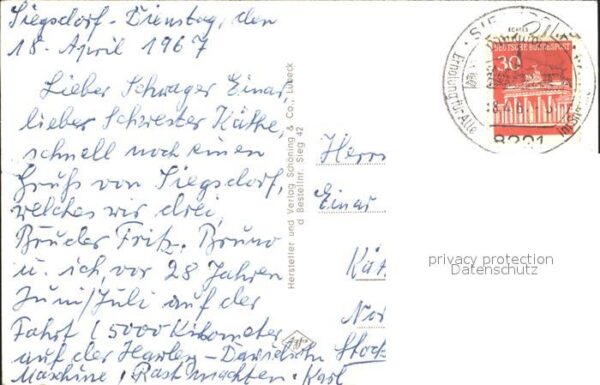 Siegsdorf - Dienstag, den
18. April 1967
Lieber Schwager Einar
lieber Schwester Käthe,
schnell noch einen
Gruß von Siegsdorf,
welches wir drei
Brüder Fritz, Bruno
u. ich, vor 28 Jahren
Juni/Juli auf der
Fahrt (5000 Kilometer
auf der Harley-Davidsohn
Maschine, Rast machten. Karl
Hersteller und Verlag Schöning & Co., Lübeck
d Bestellnr. Sieg 42
Herrn
Einar
Kät
Nor
Stock
DEUTSCHE BUNDESPOST
30
Erholung für Alle
8221
privacy protection
Datenschutz